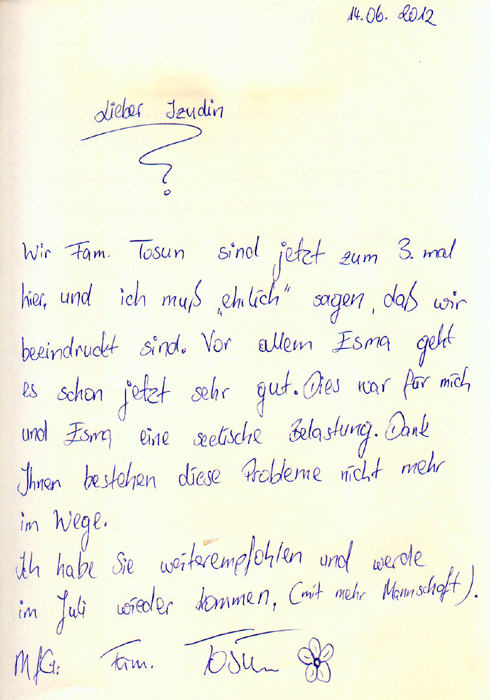 14.06.2012
Lieber Izudin
?
Wir Fam. Tosun sind jetzt zum 3. mal
hier, und ich muß „ehrlich" sagen, daß wir
beeindruckt sind. Vor allem Esma geht
es schon jetzt sehr gut. Dies war für mich
und Esma eine seelische Belastung. Dank
Ihnen bestehen diese Probleme nicht mehr
im Wege.
Ich habe Sie weiterempfohlen und werde
im Juli wieder kommen, (mit mehr Mannschaft).
MfG: Fam. Tosun